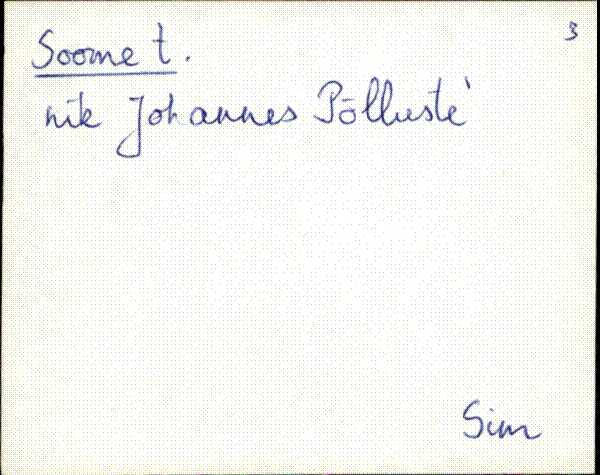 3
Soome t.
nik Johannes Põllusté
Sim